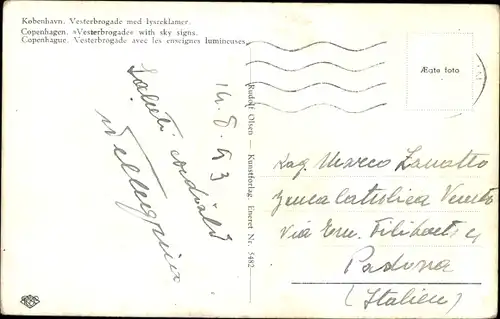 København. Vesterbrogade med lysreklamer.
Copenhagen. »Vesterbrogade« with sky signs.
Copenhague. Vesterbrogade avec les enseignes lumineuses.
14.8.53
Saluti cordiali
Pellegrini
Rudolf Olsen — Kunstforlag. Eneret Nr. 5482
Ægte foto
Rag. Marco Zanatto
Banca Cattolica Veneto
Via Em. Filiberto 4
Padova
(Italien)